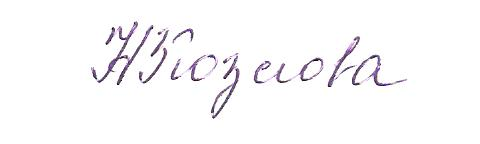 НКозлова